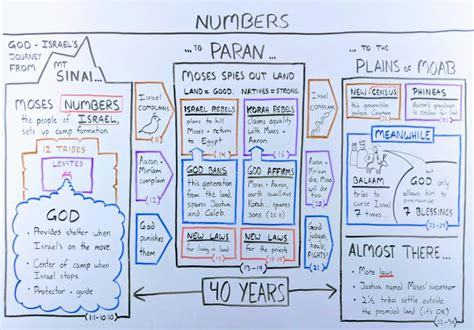 NUMBERS
GOD - ISRAEL'S
JOURNEY
FROM
MT
SINAI...
MOSES NUMBERS
the people of ISRAEL,
sets up camp formation
12 TRIBES
LEVITES
GOD
• Provides shelter when
Israel's on the move
• Center of camp when
Israel stops
• Protector + guide
(1:1-10:10)
Israel
complains
(11)
Aaron +
Miriam
complain
(12)
God
punishes
them
...TO
PARAN...
MOSES SPIES OUT LAND
LAND = GOOD, NATIVES = STRONG
ISRAEL REBELS
plans to kill
Moses + return
to Egypt
(14)
KORAH REBELS
claims equality
with Moses +
Aaron
(16)
GOD BANS
this generation
from the land,
spares Joshua
and Caleb
GOD AFFIRMS
Moses + Aaron,
swallows
Korah, spares
sons
NEW LAWS
for living in land
NEW LAWS
for the priests
40 YEARS
Israel
complains
Aaron +
Miriam
die, Mo
will die
too
God
judges,
heals,
FIGHTS!
(21)
...TO THE
PLAINS OF MOAB
NEW CENSUS
this generation
enters Canaan
(26)
PHINEAS
Aaron's grandson
is zealous for God
(25)
MEANWHILE
BALAAM
tries to
curse Israel
7 times.
GOD
only
allows him
to
pronounce
7 BLESSINGS
ALMOST THERE...
• More laws
• Joshua named Moses' successor
• 2½ tribes settle outside
the promised land (it's OK)